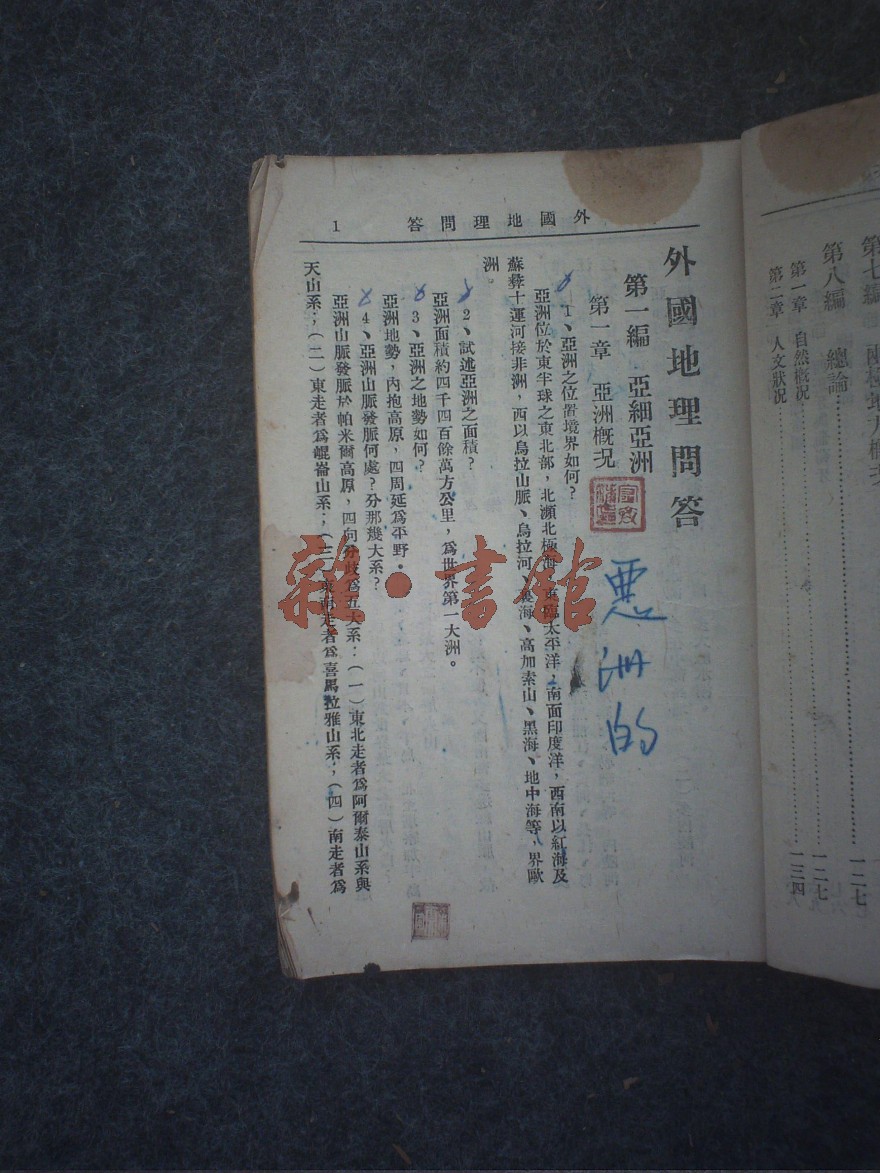 第七編
第八編 總論……一二七
第一章 自然概況……一二七
第二章 人文狀況……一三四
外國地理問答 1
外國地理問答
第一編 亞細亞洲
第一章 亞洲概況
悪洲的
1、亞洲之位置境界如何？
亞洲位於東半球之東北部，北瀕北極海，東臨太平洋，南面印度洋，西南以紅海及
蘇彝士運河接非洲，西以烏拉山脈、烏拉河、裏海、高加索山、黑海、地中海等，界歐
洲。
2、試述亞洲之面積？
亞洲面積約四千四百餘萬方公里，為世界第一大洲。
3、亞洲之地勢如何？
亞洲地勢，內抱高原，四周延為平野。
4、亞洲山脈發脈何處？分那幾大系？
亞洲山脈發脈於帕米爾高原，四向分歧為五大系：（一）東北走者為阿爾泰山系與
天山系；（二）東走者為崐崙山系；（三）東南走者為喜馬拉雅山系；（四）南走者為
雜·書館